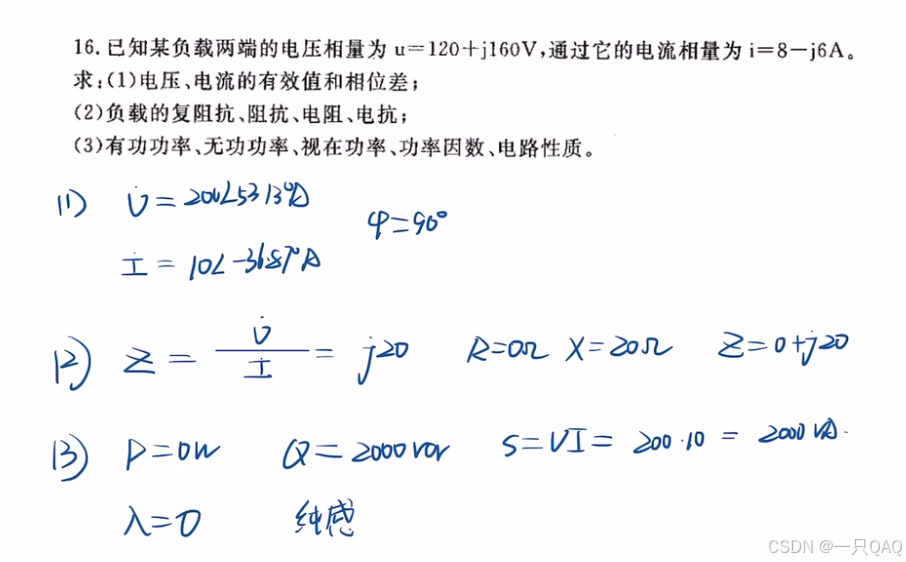 16.已知某负载两端的电压相量为 u=120+j160V,通过它的电流相量为 i=8-j6A。
求:(1)电压、电流的有效值和相位差;
(2)负载的复阻抗、阻抗、电阻、电抗;
(3)有功功率、无功功率、视在功率、功率因数、电路性质。
(1) U̇=200∠53.13° φ=90°
İ=10∠-36.87°A
(2) Z=U̇/İ=j20 R=0Ω X=20Ω Z=0+j20
(3) P=0W Q=2000var S=UI=200·10=2000VA.
λ=0 纯感
CSDN @一只QAQ